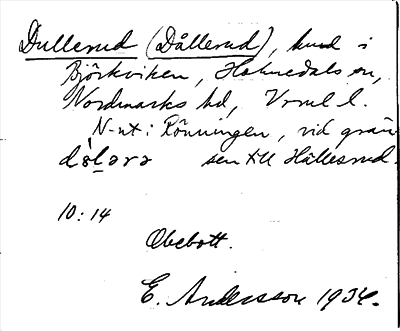 Dullerud (Dållerud), hmd i
Björkviken, Holmedals sn,
Nordmarks hd, Vrml l.
N-ut i Rönningen, vid grän
sen till Hällesrud.
10:14
Obebott.
E. Andersson 1934.